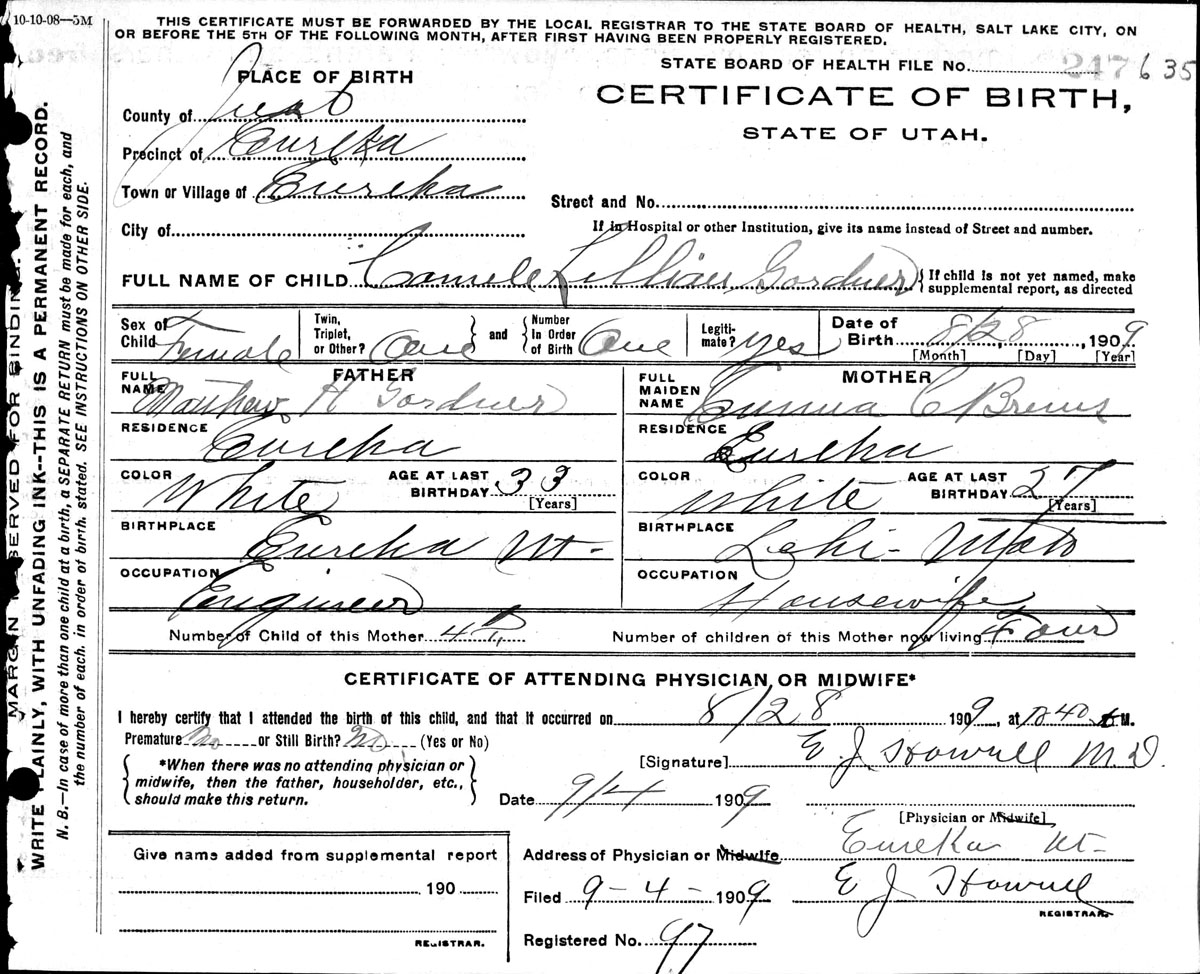 10-10-08—5M
THIS CERTIFICATE MUST BE FORWARDED BY THE LOCAL REGISTRAR TO THE STATE BOARD OF HEALTH, SALT LAKE CITY, ON
OR BEFORE THE 5TH OF THE FOLLOWING MONTH, AFTER FIRST HAVING BEEN PROPERLY REGISTERED.
STATE BOARD OF HEALTH FILE NO. 247 635
CERTIFICATE OF BIRTH,
STATE OF UTAH.
PLACE OF BIRTH
County of Juab
Precinct of Eureka
Town or Village of Eureka
City of
Street and No.
If in Hospital or other Institution, give its name instead of Street and number.
FULL NAME OF CHILD Lillian Gardner {If child is not yet named, make
supplemental report, as directed
Sex of Child Female
Twin, Triplet, or Other? One and Number In Order of Birth One
Legitimate? Yes
Date of Birth 8/28, 1909
[Month] [Day] [Year]
FATHER
FULL NAME Mathew H Gardner
RESIDENCE Eureka
COLOR White AGE AT LAST BIRTHDAY 33 [Years]
BIRTHPLACE Eureka Ut-
OCCUPATION Engineer
MOTHER
FULL MAIDEN NAME Emma C
RESIDENCE Eureka
COLOR White AGE AT LAST BIRTHDAY 27 [Years]
BIRTHPLACE Lehi- Utah
OCCUPATION Housewife
Number of Child of this Mother 4th Number of children of this Mother now living Four
CERTIFICATE OF ATTENDING PHYSICIAN OR MIDWIFE*
I hereby certify that I attended the birth of this child, and that it occurred on 8/28 1909, at M.
Premature No or Still Birth? No (Yes or No)
*When there was no attending physician or
midwife, then the father, householder, etc.,
should make this return.
[Signature] E J Howell M.D.
Date 9/4 1909
[Physician or Midwife]
Address of Physician or Midwife Eureka Ut-
Filed 9-4- 1909 E J Howell
REGISTRAR.
Registered No. 97
Give name added from supplemental report
190
REGISTRAR.
MARGIN RESERVED FOR BINDING.
WRITE PLAINLY, WITH UNFADING INK--THIS IS A PERMANENT RECORD.
N. B.—In case of more than one child at a birth, a SEPARATE RETURN must be made for each, and
the number of each, in order of birth, stated. SEE INSTRUCTIONS ON OTHER SIDE.